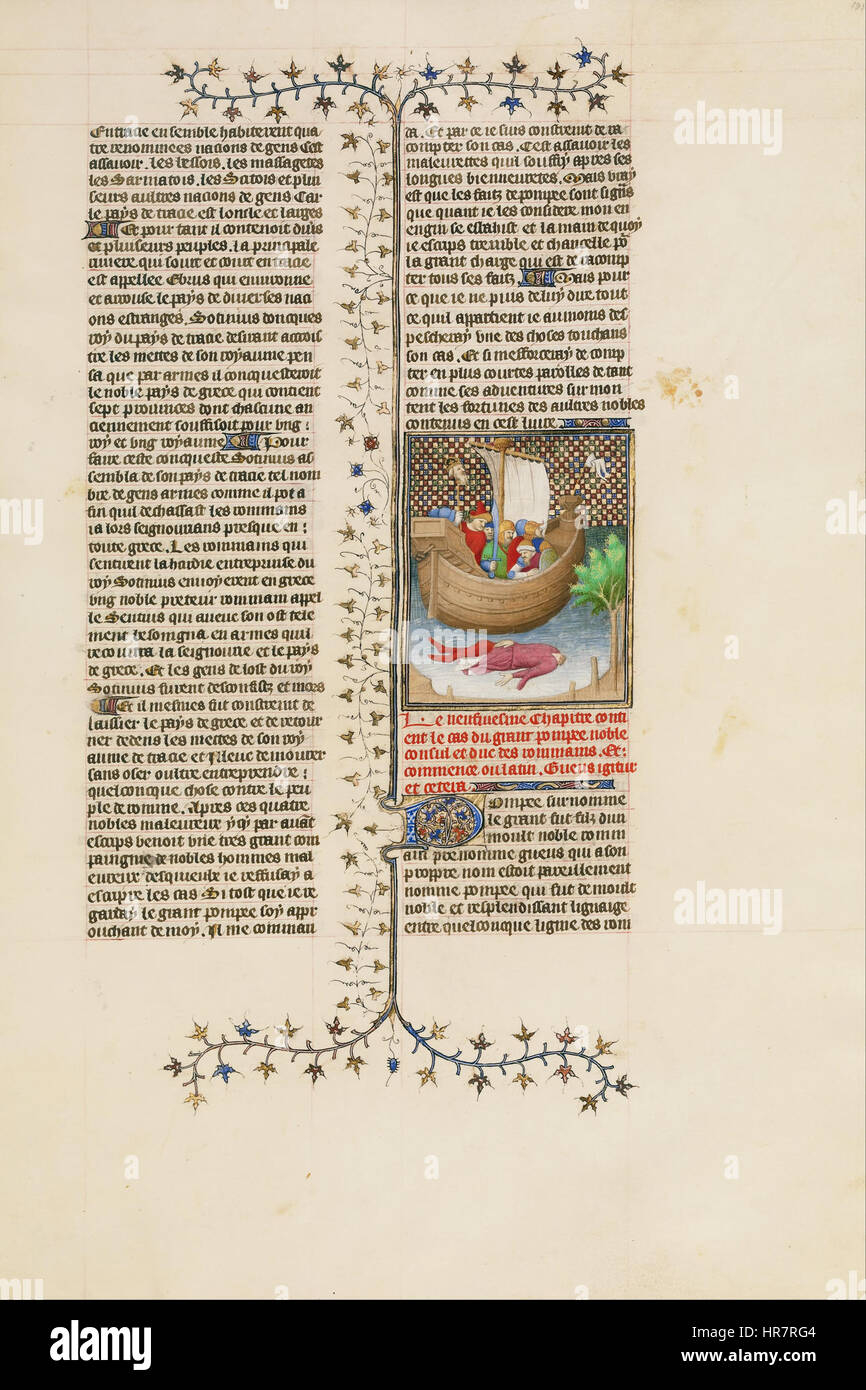 En tracie ensemble habiterent qua
tre renommees nacions de gens Cest
assavoir. les bessois. les massagetes
les Sarmatois. les Scitois et plu
seurs aultres nacions de gens Car
le pays de tracie est long le et larges
Et pour tant il contenoit divers
et pluseurs peuples. la principale
riviere qui sourt et court en tracie
est appellee Ebrus qui environne
et arrouse le pays de diverses naci
ons estranges. Sotinius doncques
roy du pays de tracie desirant accrois
tre les mettes de son royaume pen
sa que par armes il conquesteroit
le noble pays de grece qui contient
sept provinces dont chascune an
ciennement souffisoit pour ung:
roy et ung royaume Pour
faire ceste conqueste Sotinius as
sembla de son pays de tracie tel nom
bre de gens armes comme il pot a
fin quil dechassast les rommains
ia lors seignourians presque en:
toute grece. Les rommains qui
sentirent la hardie entreprinse du
roy Sotinius envoyerent en grece
ung noble preteur rommain appel
le Sentius qui avecc son ost tele
ment besongna en armes quil
recouvra la seignourie et le pays
de grece. Et les gens de lost du roy
Sotinius furent desconfitz et mors
Et il mesmes fut constreint de
laissier le pays de grece et de retour
ner dedens les mettes de son roy
aume de tracie et illeuc demourer
sans oser oultre entreprendre:
quelconque chose contre le peu
ple de romme. Apres ces quatre
nobles maleureux yqy par avant
escrips benoit une tres grant com
paignie de nobles hommes mal
eureux desquelx ie reffusay a
escripre les cas Si tost que ie re
garday le grant pompee soy appr
ouchant de moy. Il me comman
da. Et par ce ie suis constreint de ra
compter son cas. Cest assavoir les
maleurettes quil souffry apres ses
longues bieneuretes. Mais vray
est que les faitz de pompee sont si grans
que quant ie les considere mon en
engin se esbahist et la main de quoy
ie escrips tremble et chancelle pour
la grant charge qui est de racomp
ter tous ses faitz. Mais pour
ce que ie ne puis de luy dire tout
ce quil appartient ie au moins des
pescheray une des choses touchans
son cas. Et si mefforceray de comp
ter en plus courtes parolles de tant
comme ses adventures surmon
tent les fortunes des aultres nobles
contenus en cest livre.
Le neufviesme Chapitre conti
ent le cas du grant pompee noble
consul et duc des rommains. Et:
commence ou latin. Gueus igitur
et cetera.
Pompee surnomme
le grant fut filz dun
moult noble romm
ain prenomme gueus qui a son
propre nom estoit pareillement
nomme pompee qui fut de moult
noble et resplendissant lignaige
entre quelconque lignie des rom
alamy
alamy
alamy
alamy
alamy
HR7RG4
www.alamy.com